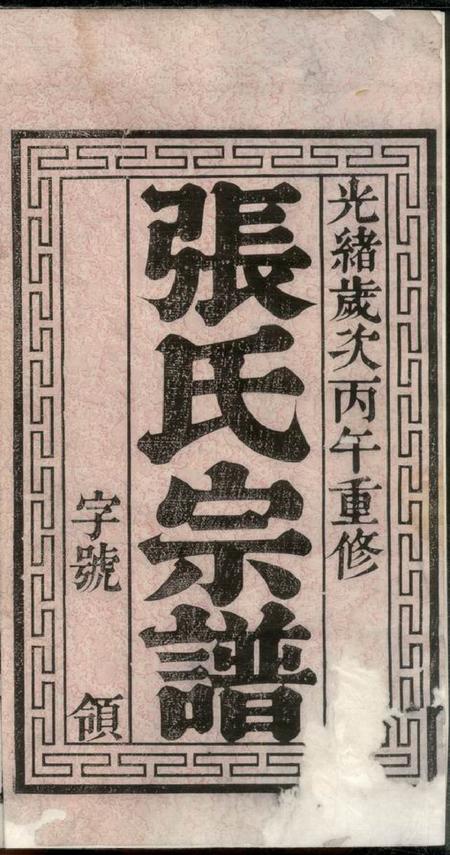 光緒歲次丙午重修
張氏宗譜
字號
領